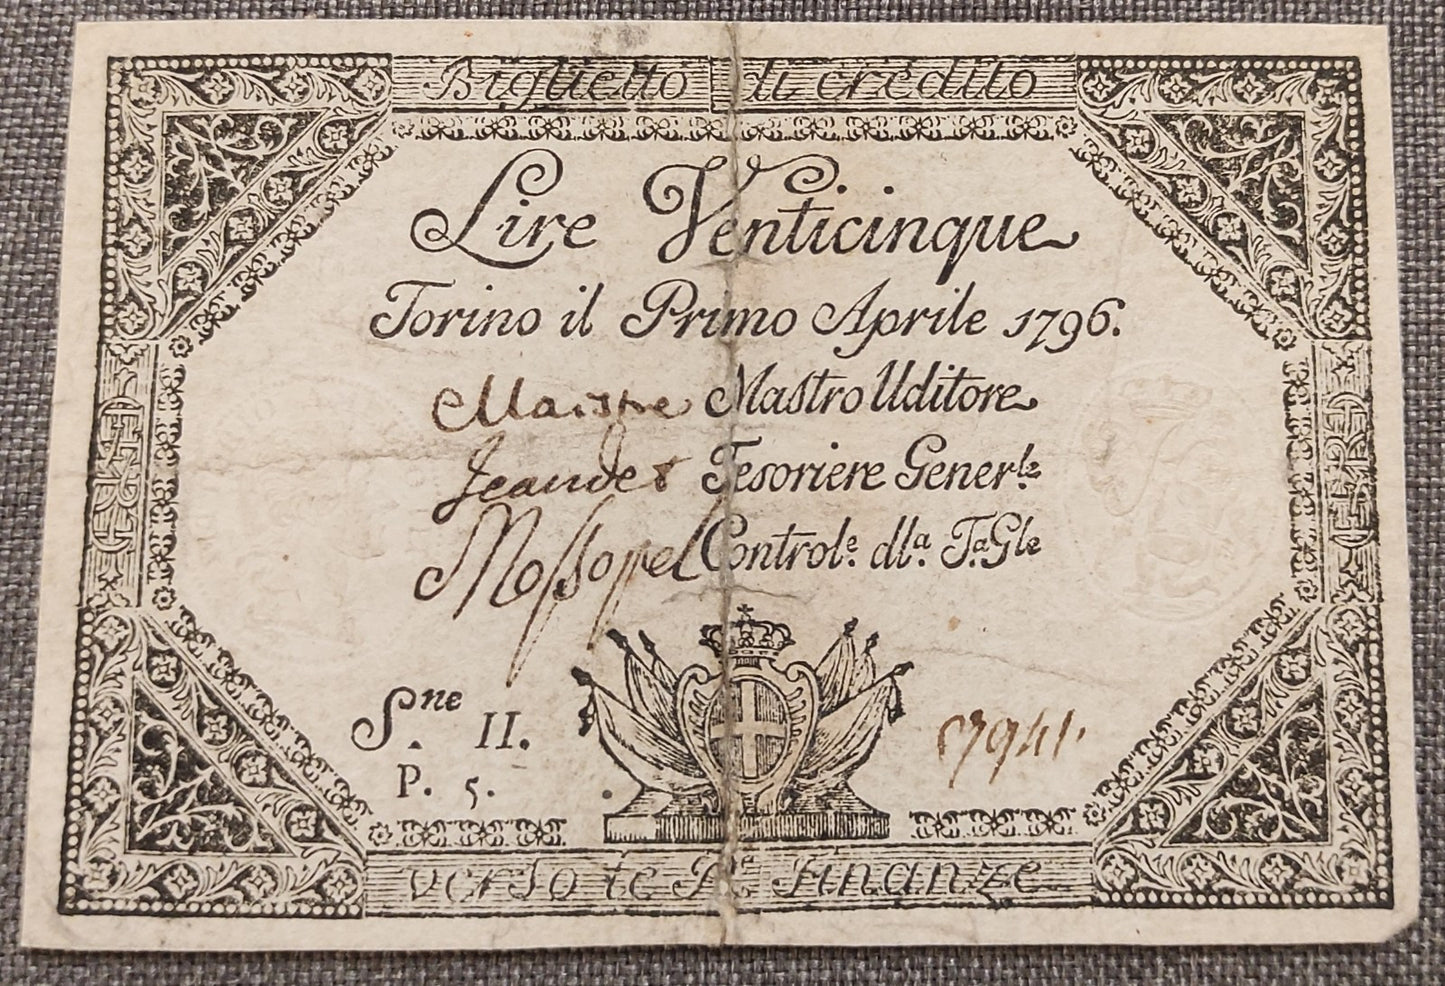 Biglietto di credito
Lire Venticinque
Torino il Primo Aprile 1796.
Maistre Mastro Uditore
Jeandet Tesoriere Gener.le
Mossopel Control.e dl.a T.a G.le
S.ne II.
P. 5.
7941.
verso le R.e Finanze